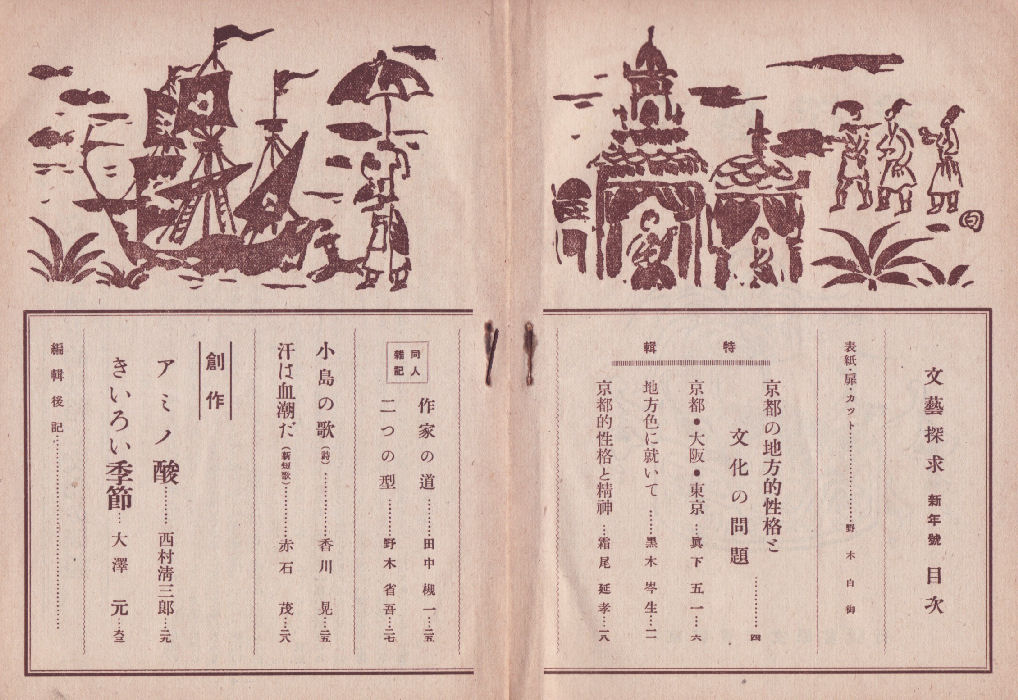 文藝探求 新年號 目次
表紙・扉・カット………………野木白御
特輯
京都の地方的性格と
文化の問題…………四
京都●大阪●東京…眞下五一…六
地方色に就いて……黒木岑生…一一
京都的性格と精神…霜尾延孝…一八
同人
雜記
作家の道……田中槻一…二五
二つの型……野木省吾…二七
小島の歌(詩)…………香川晃…二五
汗は血潮だ(新短歌)…………赤石茂…二八
創作
アミノ酸……西村淸三郎…二九
きいろい季節…大澤元…
編輯後記………………